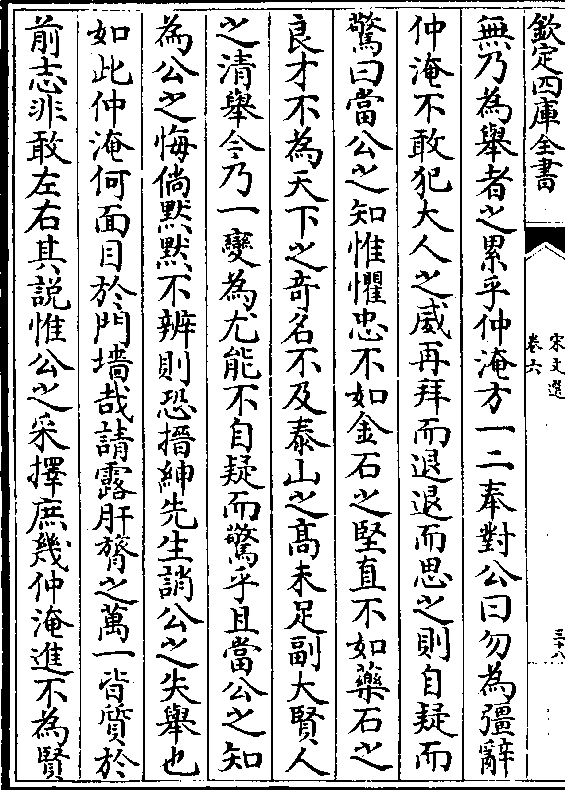 欽定四庫全書
宋文選
卷六
三十八
無乃為舉者之累乎仲淹方一二奉對公曰勿為彊辭
仲淹不敢犯大人之威再拜而退退而思之則自疑而
驚曰當公之知惟懼忠不如金石之堅直不如藥石之
良才不為天下之竒名不及泰山之髙未足副大賢人
之清舉今乃一變為尤能不自疑而驚乎且當公之知
為公之悔倘默默不辨則恐搢紳先生誚公之失舉也
如此仲淹何面目於門墻哉請露肝膂之萬一皆質於
前志非敢左右其說惟公之采擇庶幾仲淹進不為賢